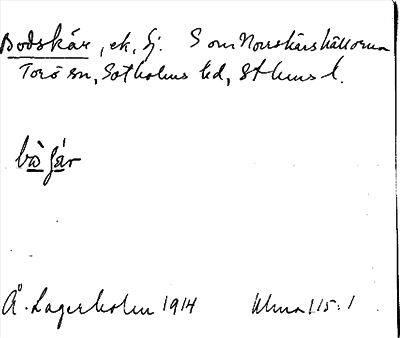 Bodskär, ek, Sj. S om Norrskärshällorna
Torö sn, Sotholms hd, Sthlms l.
bò ʃär
Å. Lagerholm 1914 Ulma 115:1